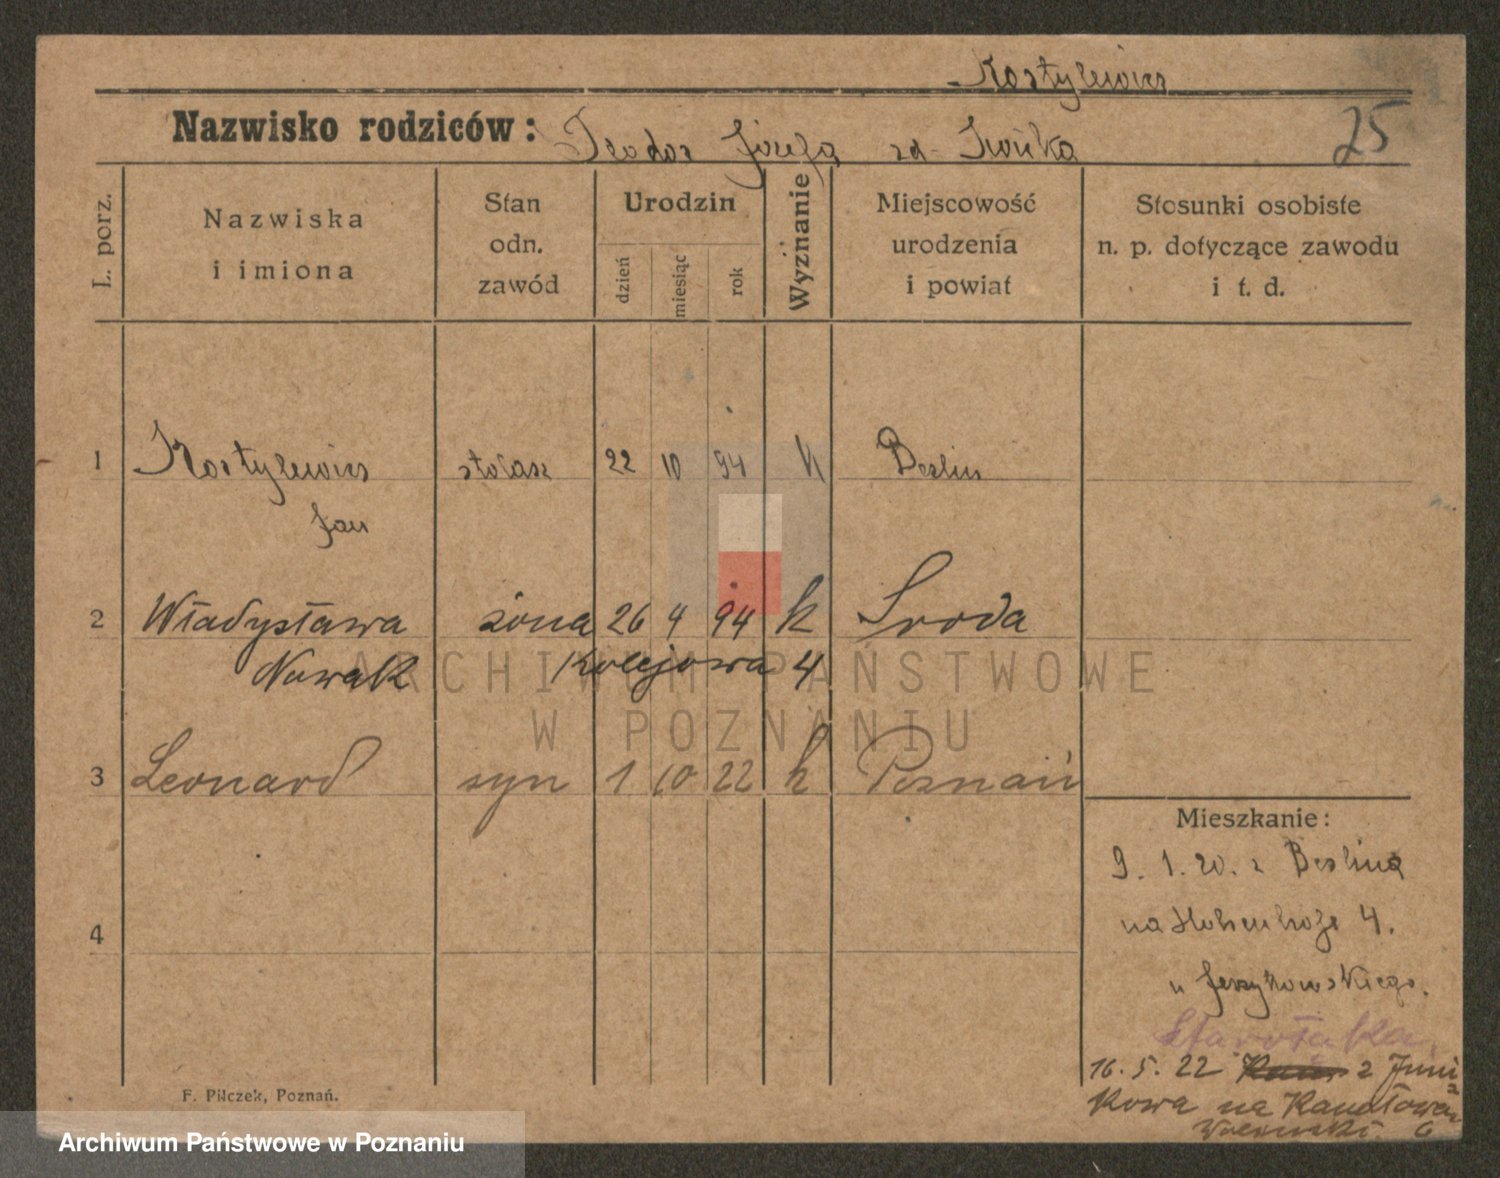 Kostylewicz
Nazwisko rodziców: Teodor Józefa zd. Iwońka
25
L. porz.
Nazwiska i imiona
Stan odn. zawód
Urodzin
dzień
miesiąc
rok
Wyznanie
Miejscowość urodzenia i powiat
Stosunki osobiste n. p. dotyczące zawodu i t. d.
1 Kostylewicz stolarz 22 10 94 K Berlin
Jan
2 Władysława żona 26 4 94 k Środa
Nowak Kolejowa 4
3 Leonard syn 1 10 22 k Poznań
4
Mieszkanie:
9. 1. 20. z Berlina
na 4.
u Jerzykowskiego.
Starołęka,
16. 5. 22 z Juni
kowa na Kanałowa
6
F. Pilczek, Poznań.
ARCHIWUM PAŃSTWOWE
W POZNANIU
Archiwum Państwowe w Poznaniu